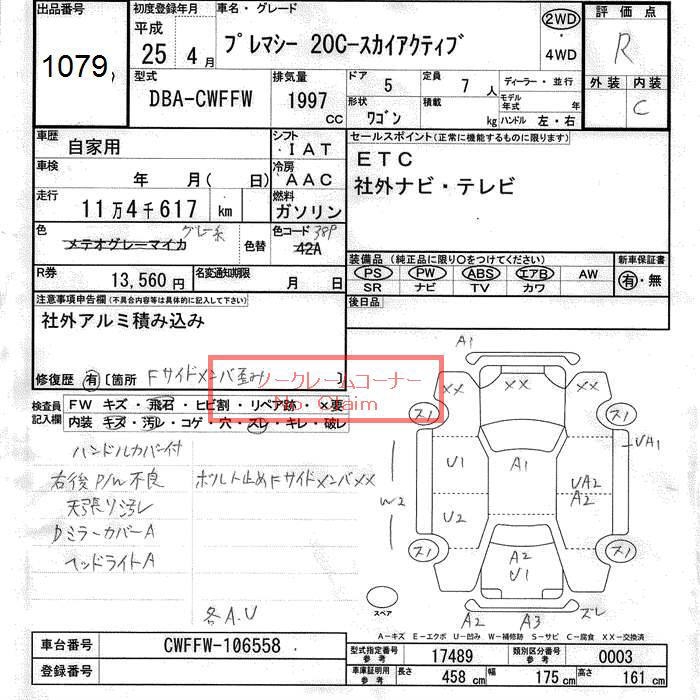 出品番号
1079
初度登録年月
平成
25 4月
車名・グレード
プレマシー 20C-スカイアクティブ
2WD
・
4WD
評価点
R
外装 内装
C
型式
DBA-CWFFW
排気量
1997
CC
ドア
5
定員
7人
ディーラー・並行
形状
ワゴン
積載
kg
モデル年式 年
ハンドル 左・右
車歴
自家用
シフト
IAT
車検
年 月( 日)
冷房
AAC
走行
11万4千617 km
燃料
ガソリン
色
メテオグレーマイカ
グレー系
色替
色コード
42A
38P
R券
13,560円
名変通知期限
月 日
セールスポイント(正常に機能するものに限ります)
ETC
社外ナビ・テレビ
装備品(純正品に限り○をつけてください)
新車保証書
PS PW ABS エアB AW
SR ナビ TV カワ
有・無
後日品
注意事項申告欄(不具合内容等は具体的に記入して下さい)
社外アルミ積み込み
修復歴 有[箇所 Fサイドメンバ歪み ]
ノークレームコーナー
No Claim
検査員記入欄
FW キズ・飛石・ヒビ割・リペア跡・×要
内装・キズ・汚レ・コゲ・穴・スレ・キレ・破レ
ハンドルカバー付
右後P/W不良 ボルト止めFサイドメンバXX
天張り汚レ
DミラーカバーA
ヘッドライトA
各A.U
A1
XX XX XX
ス1 ス1
UA1
U1 A1 UA2
A2
W2
U2
ス1 A2 ス1
U1
スペア
A2 A3 ズレ
A-キズ E-エクボ U-凹み W-補修跡 S-サビ C-腐食 XX-交換済
車台番号
CWFFW-106558
登録番号
型式指定番号
参考
17489
類別区分番号
参考
0003
車庫証明用
参考
長さ 458 cm 幅 175 cm 高さ 161 cm